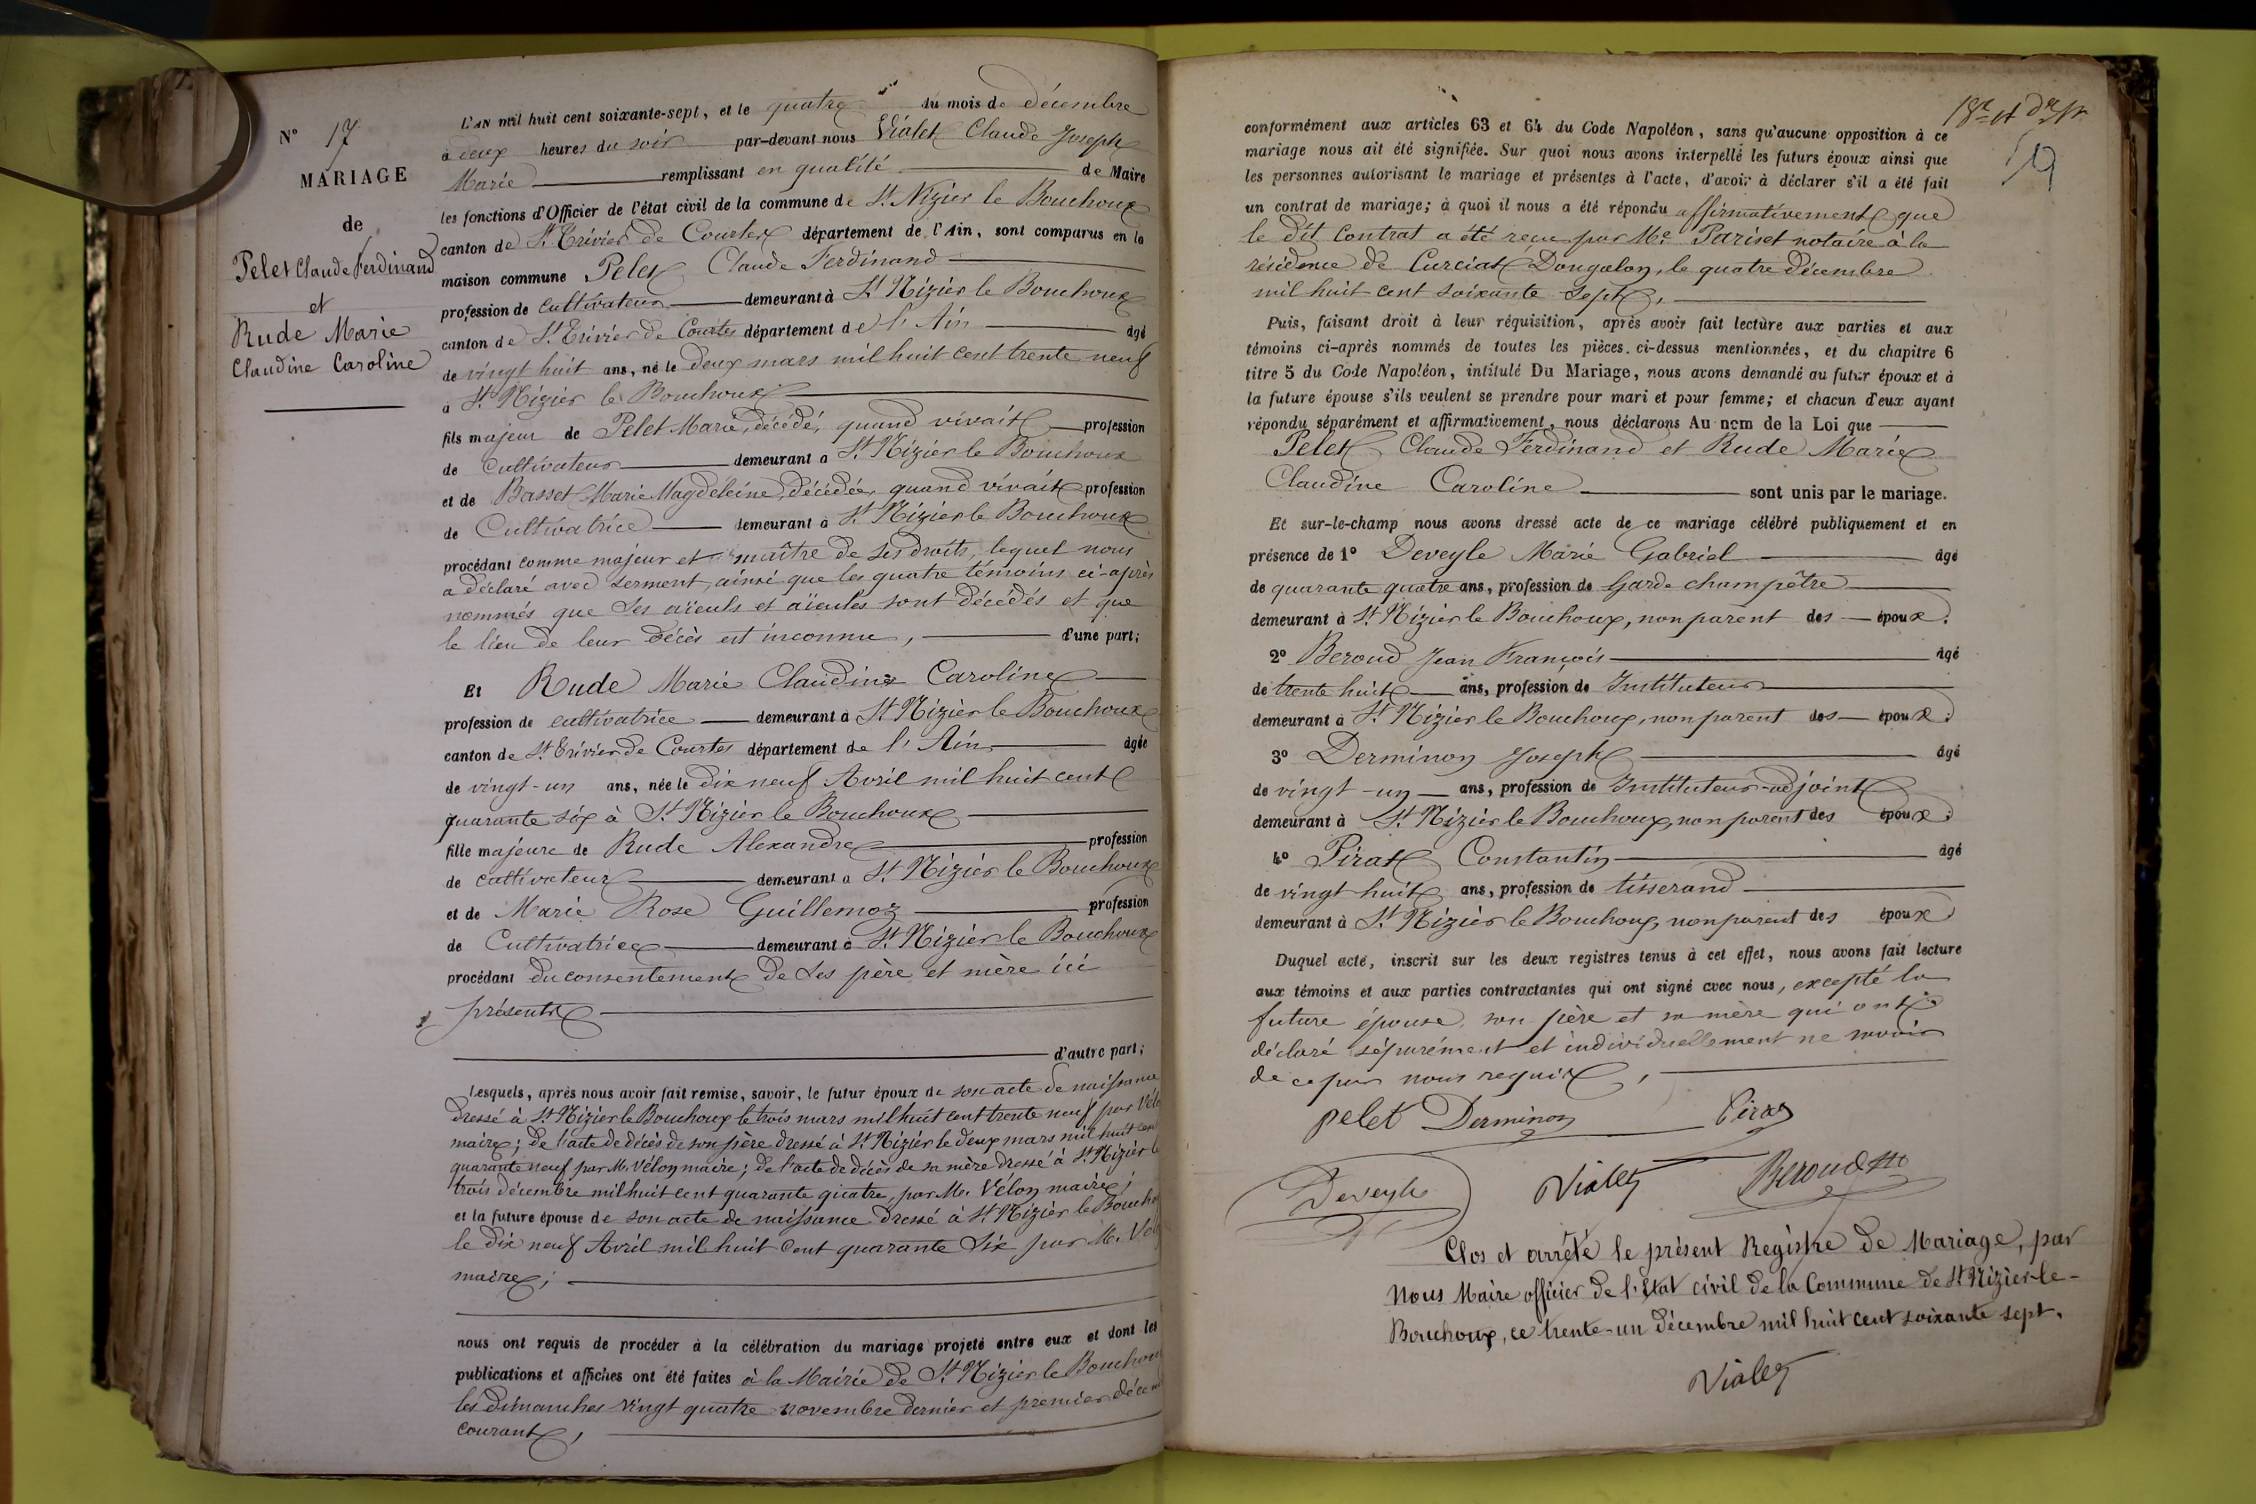 N° 17
MARIAGE
de
Pelet Claude Ferdinand
et
Rude Marie
Claudine Caroline
L'AN mil huit cent soixante-sept, et le quatre du mois de décembre
à deux heures du soir par-devant nous Vialet Claude Joseph
Marie remplissant en qualité de Maire
les fonctions d'Officier de l'état civil de la commune de St. Nizier le Bouchoux
canton de St. Trivier de Courtes département de l'Ain, sont comparus en la
maison commune Pelet Claude Ferdinand
profession de cultivateur demeurant à St Nizier le Bouchoux
canton de St. Trivier de Courtes département de l'Ain âgé
de vingt huit ans, né le deux mars mil huit cent trente neuf
à St. Nizier le Bouchoux
fils majeur de Pelet Marie, décédé, quand vivait profession
de Cultivateur demeurant à St Nizier le Bouchoux
et de Basset Marie Magdeleine, décédée, quand vivait profession
de Cultivatrice demeurant à St. Nizier le Bouchoux
procédant comme majeur et maître de ses droits, lequel nous
a déclaré avec serment, ainsi que les quatre témoins ci-après
nommés que ses aïeuls et aïeules sont décédés et que
le lieu de leur décès est inconnu, d'une part;
Et Rude Marie Claudine Caroline
profession de cultivatrice demeurant à St Nizier le Bouchoux
canton de St. Trivier de Courtes département de l'Ain âgée
de vingt-un ans, née le dix neuf Avril mil huit cent
quarante six à St. Nizier le Bouchoux
fille majeure de Rude Alexandre profession
de cultivateur demeurant à St. Nizier le Bouchoux
et de Marie Rose Guillemoz profession
de Cultivatrice demeurant à St. Nizier le Bouchoux
procédant du consentement de ses père et mère ici
présents
d'autre part;
Lesquels, après nous avoir fait remise, savoir, le futur époux de son acte de naissance
dressé à St. Nizier le Bouchoux le trois mars mil huit cent trente neuf par
maire; de l'acte de décès de son père dressé à St. Nizier le deux mars mil huit cent
quarante neuf par M. Vélon maire; de l'acte de décès de sa mère dressé à St. Nizier le
trois décembre mil huit cent quarante quatre, par Mr. Vélon maire;
et la future épouse de son acte de naissance dressé à St. Nizier le Boucho
le dix neuf Avril mil huit cent quarante six par M. Vel
maire;
nous ont requis de procéder à la célébration du mariage projeté entre eux et dont les
publications et affiches ont été faites à la Mairie de St. Nizier le Bouchoux
les dimanches vingt quatre novembre dernier et premier décem
courant,
19
conformément aux articles 63 et 64 du Code Napoléon, sans qu'aucune opposition à ce
mariage nous ait été signifiée. Sur quoi nous avons interpellé les futurs époux ainsi que
les personnes autorisant le mariage et présentes à l'acte, d'avoir à déclarer s'il a été fait
un contrat de mariage; à quoi il nous a été répondu affirmativement que
le dit Contrat a été reçu par Me. Pariset notaire à la
résidence de Curciat Dongalon, le quatre décembre
mil huit cent soixante sept,
Puis, faisant droit à leur réquisition, après avoir fait lecture aux parties et aux
témoins ci-après nommés de toutes les pièces ci-dessus mentionnées, et du chapitre 6
titre 5 du Code Napoléon, intitulé Du Mariage, nous avons demandé au futur époux et à
la future épouse s'ils veulent se prendre pour mari et pour femme; et chacun d'eux ayant
répondu séparément et affirmativement, nous déclarons Au nom de la Loi que
Pelet Claude Ferdinand et Rude Marie
Claudine Caroline sont unis par le mariage.
Et sur-le-champ nous avons dressé acte de ce mariage célébré publiquement et en
présence de 1° Deveyle Marie Gabriel âgé
de quarante quatre ans, profession de Garde champêtre
demeurant à St. Nizier le Bouchoux, non parent des époux.
2° Beroud Jean François âgé
de trente huit ans, profession de Instituteur
demeurant à St. Nizier le Bouchoux, non parent des époux.
3° Derminon Joseph âgé
de vingt-un ans, profession de Instituteur-adjoint
demeurant à St. Nizier le Bouchoux, non parent des époux.
4° Pirat Constantin âgé
de vingt huit ans, profession de tisserand
demeurant à St. Nizier le Bouchoux, non parent des époux
Duquel acte, inscrit sur les deux registres tenus à cet effet, nous avons fait lecture
aux témoins et aux parties contractantes qui ont signé avec nous, excepté la
future épouse, son père et sa mère qui ont
déclaré séparément et individuellement ne savoir
de ce par nous requis,
pelet Derminon Pirat
Deveyle Vialet Beroud
Clos et arrêté le présent Registre de Mariage, par
Nous Maire officier de l'état civil de la Commune de St Nizier-le-
Bouchoux, ce trente-un décembre mil huit cent soixante sept.
Vialet